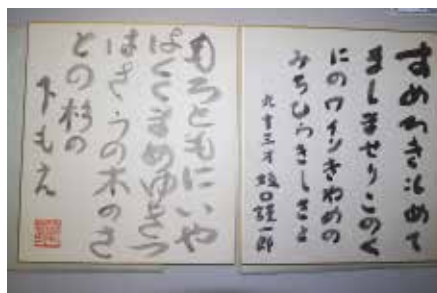 すめわきしめて
ましませりこのく
にのワインきわめの
みちひらきしきみ
九十三才 坂口謹一郎
もろともにいや
はくくまめゆきつ
はきうの木のさ
との杉の
下もえ